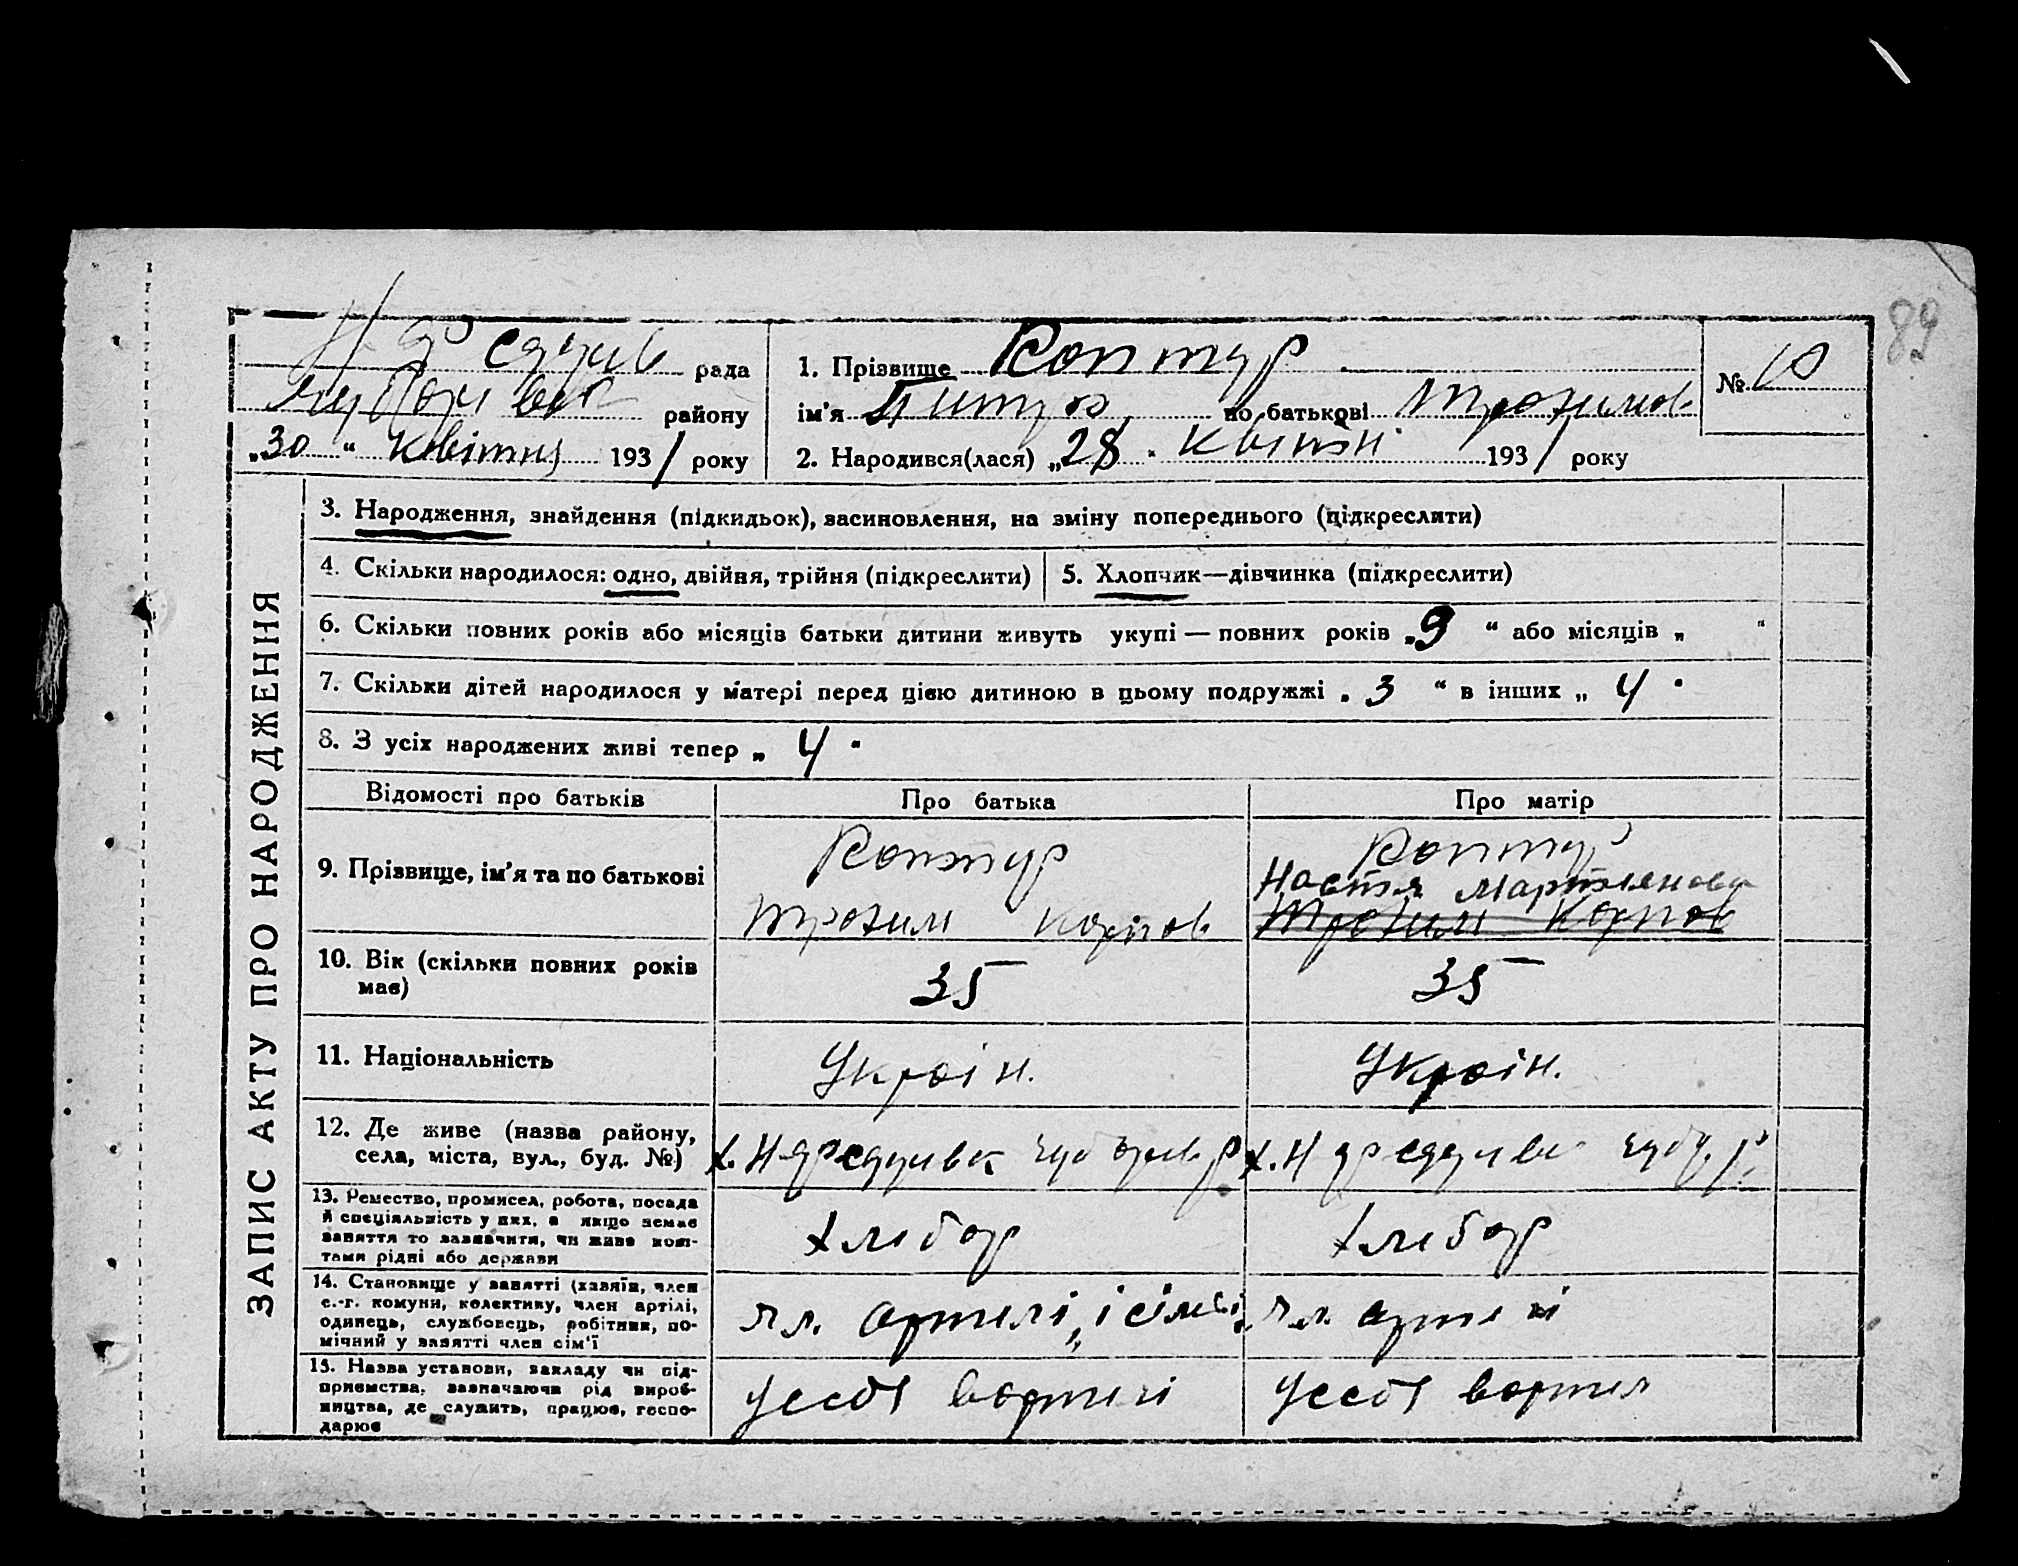 89
рада
1. Прізвище Коптур
№ 10
району
ім'я Питро по батькові Трохимов
„30“ Квітня 1931 року
2. Народився(лася) „28“ Квітні 1931 року
ЗАПИС АКТУ ПРО НАРОДЖЕННЯ
3. Народження, знайдення (підкидьок), засиновлення, на зміну попереднього (підкреслити)
4. Скільки народилося: одно, двійня, трійня (підкреслити)
5. Хлопчик—дівчинка (підкреслити)
6. Скільки повних років або місяців батьки дитини живуть укупі — повних років „9“ або місяців „ “
7. Скільки дітей народилося у матері перед цією дитиною в цьому подружжі „3“ в інших „4“
8. З усіх народжених живі тепер „4“
Відомості про батьків
Про батька
Про матір
9. Прізвище, ім'я та по батькові
Коптур
Трохим Карпов
Коптур
Настя Мартянова
Трохим Карпов
10. Вік (скільки повних років має)
35
35
11. Національність
Україн.
Україн.
12. Де живе (назва району,
села, міста, вул., буд. №)
13. Ремество, промисел, робота, посада
й спеціяльність у них, а якщо немає
заняття то зазначити, чи живе кош-
тами рідні або держави
хлібор
хлібор
14. Становище у занятті (хазяїн, член
с.-г. комуни, колективу, член артілі,
одинець, службовець, робітник, по-
мічний у занятті член сім'ї
чл. артилі
чл. артилі
15. Назва установи, закладу чи під-
приємства, зазначаючи рід вироб-
ництва, де служить, працює, госпо-
дарює
Усебя вартилі
Усебя вартил